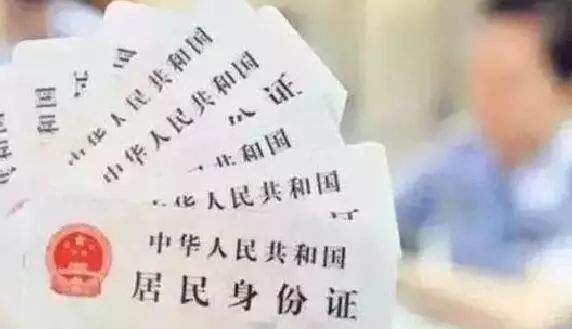 中华人民共和国
中华人民共和国
证
民共和国
华人民共和国
证
中华人民共和国
居民身份证